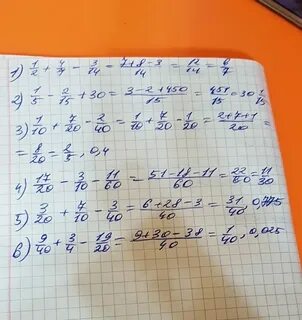 1) 1/2 + 4/7 - 3/14 = 7+8-3/14 = 12/14 = 6/7
2) 1/5 - 2/15 + 30 = 3-2+450/15 = 451/15 = 30 1/15
3) 1/10 + 7/20 - 2/40 = 1/10 + 7/20 - 1/20 = 2+7+1/20 =
= 8/20 = 2/5, 0,4
4) 17/20 - 3/10 - 11/60 = 51-18-11/60 = 22/60 = 11/30
5) 3/20 + 7/10 - 3/40 = 6+28-3/40 = 31/40, 0,775
6) 9/40 + 3/4 - 19/20 = 9+30-38/40 = 1/40, 0,025